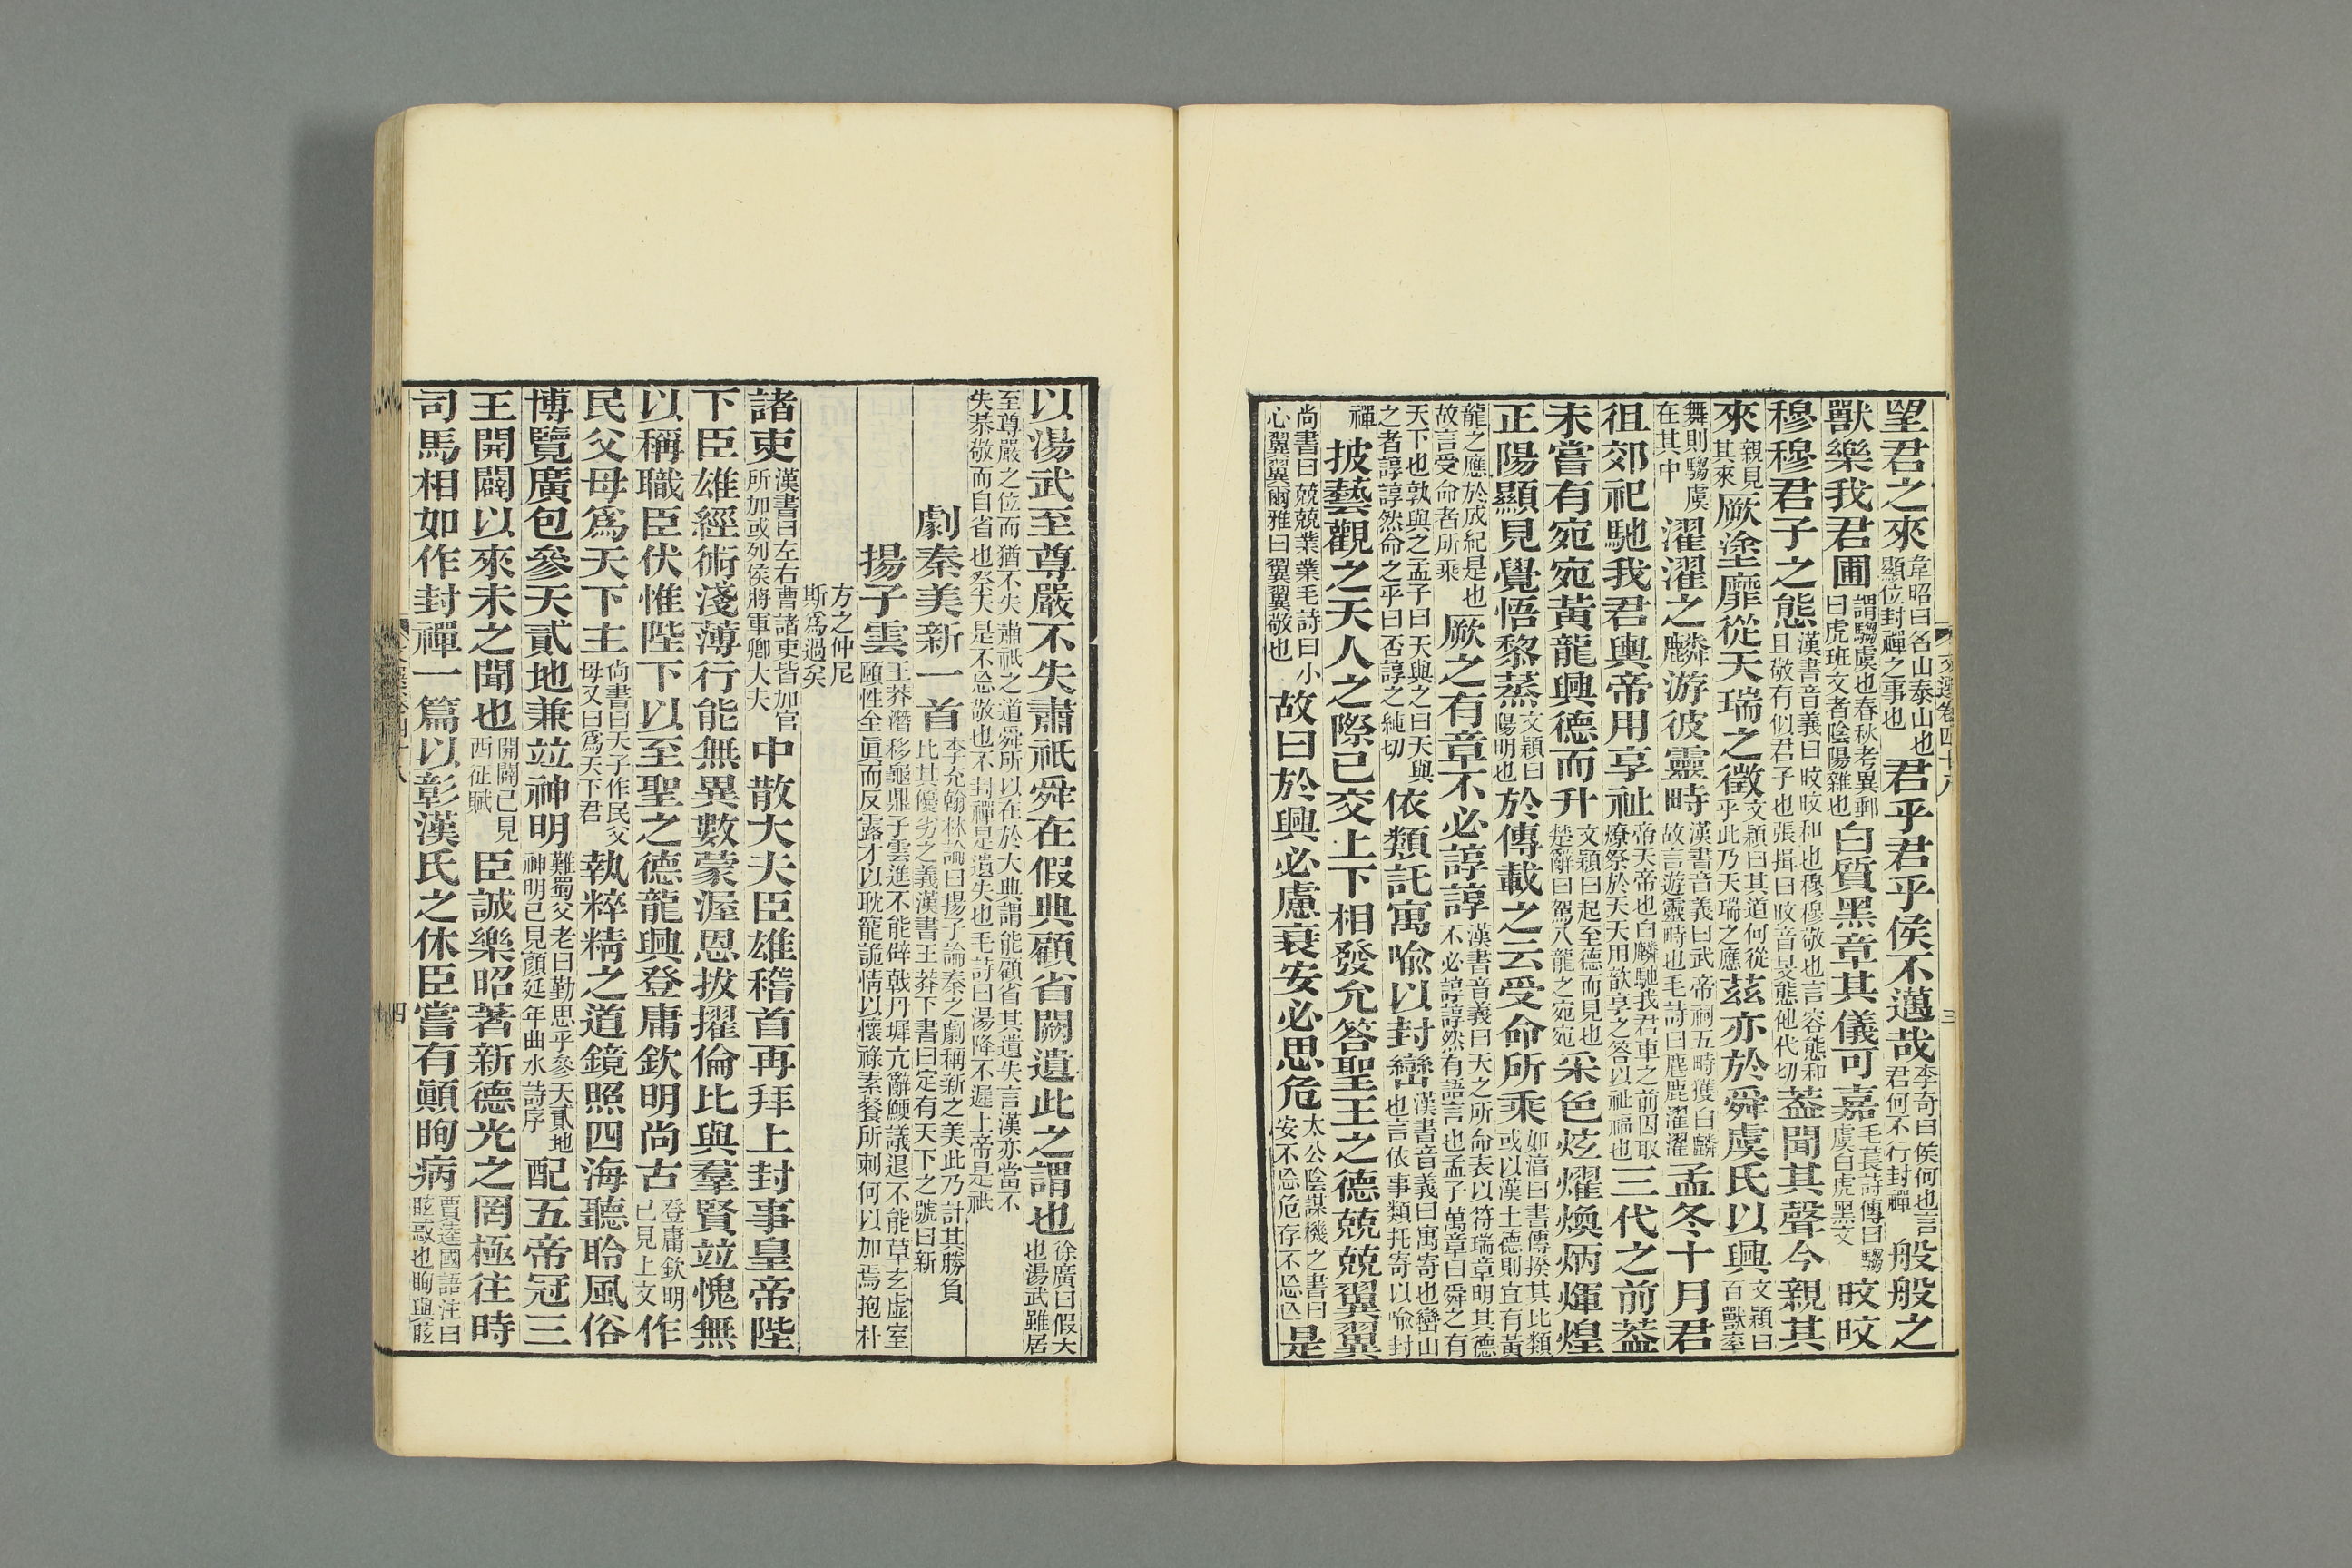 望君之來韋昭曰名山泰山也顯位封禪之事也君乎君乎侯不邁哉李奇曰侯何也言君何不行封禪般般之
獸樂我君圃謂騶虞也春秋考異郵曰虎班文者陰陽雜也白質黑章其儀可嘉毛萇詩傳曰騶虞白虎黑文旼旼
穆穆君子之態漢書音義曰旼旼和也穆穆敬也言容態和且敬有似君子也張揖曰旼音旻態他代切蓋聞其聲今親其
來親見其來厥塗靡從天瑞之徵文穎曰其道何從乎此乃天瑞之應茲亦於舜虞氏以興文穎曰百獸率
舞則騶虞在其中濯濯之麟游彼靈畤漢書音義曰武帝祠五畤獲白麟故言遊靈畤也毛詩曰麀鹿濯濯孟冬十月君
徂郊祀馳我君輿帝用享祉帝天帝也白麟馳我君車之前因取燎祭於天天用歆享之答以祉福也三代之前蓋
未嘗有宛宛黃龍興德而升文穎曰起至德而見也楚辭曰駕八龍之宛宛采色炫燿煥炳煇煌
正陽顯見覺悟黎蒸文穎曰陽明也於傳載之云受命所乘如淳曰書傳揆其比類或以漢土德則宜有黃
龍之應於成紀是也故言受命者所乘厥之有章不必諄諄漢書音義曰天之所命表以符瑞章明其德不必諄諄然有語言也孟子萬章曰舜之有
天下也孰與之孟子曰天與之曰天與之者諄諄然命之乎曰否諄之純切依類託寓喻以封巒漢書音義曰寓寄也巒山也言依事類托寄以喻封
禪披藝觀之天人之際已交上下相發允答聖王之德兢兢翼翼
尚書曰兢兢業業毛詩曰小心翼翼爾雅曰翼翼敬也故曰於興必慮衰安必思危太公陰謀機之書曰安不忘危存不忘亾是
文選卷四十八
三
以湯武至尊嚴不失肅祇舜在假典顧省闕遺此之謂也徐廣曰假大也湯武雖居
至尊嚴之位而猶不失肅祇之道舜所以在於大典謂能顧省其遺失言漢亦當不失恭敬而自省也祭天是不忘敬也不封禪是遺失也毛詩曰湯降不遲上帝是祇
劇秦美新一首李充翰林論曰揚子論秦之劇稱新之美此乃計其勝負比其優劣之義漢書王莽下書曰定有天下之號曰新
揚子雲王莽潛移龜鼎子雲進不能辟戟丹墀亢辭鯁議退不能草玄虛室頤性全眞而反露才以耽寵詭情以懷祿素餐所刺何以加焉抱朴
方之仲尼斯爲過矣
諸吏漢書曰左右曹諸吏皆加官所加或列侯將軍卿大夫中散大夫臣雄稽首再拜上封事皇帝陛
下臣雄經術淺薄行能無異數蒙渥恩拔擢倫比與羣賢竝愧無
以稱職臣伏惟陛下以至聖之德龍興登庸欽明尚古登庸欽明已見上文作
民父母爲天下主尚書曰天子作民父母又曰爲天下君執粹精之道鏡照四海聽聆風俗
博覽廣包參天貳地兼竝神明難蜀父老曰勤思乎參天貳地神明已見顏延年曲水詩序配五帝冠三
王開闢以來未之聞也開闢已見西征賦臣誠樂昭著新德光之罔極往時
司馬相如作封禪一篇以彰漢氏之休臣嘗有顚眴病賈逵國語注曰眩惑也眴與眩
四